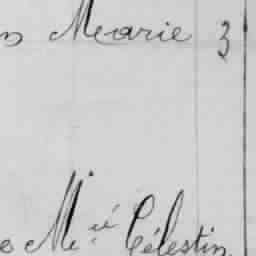 n Mearie 3
e M.ié Célestin